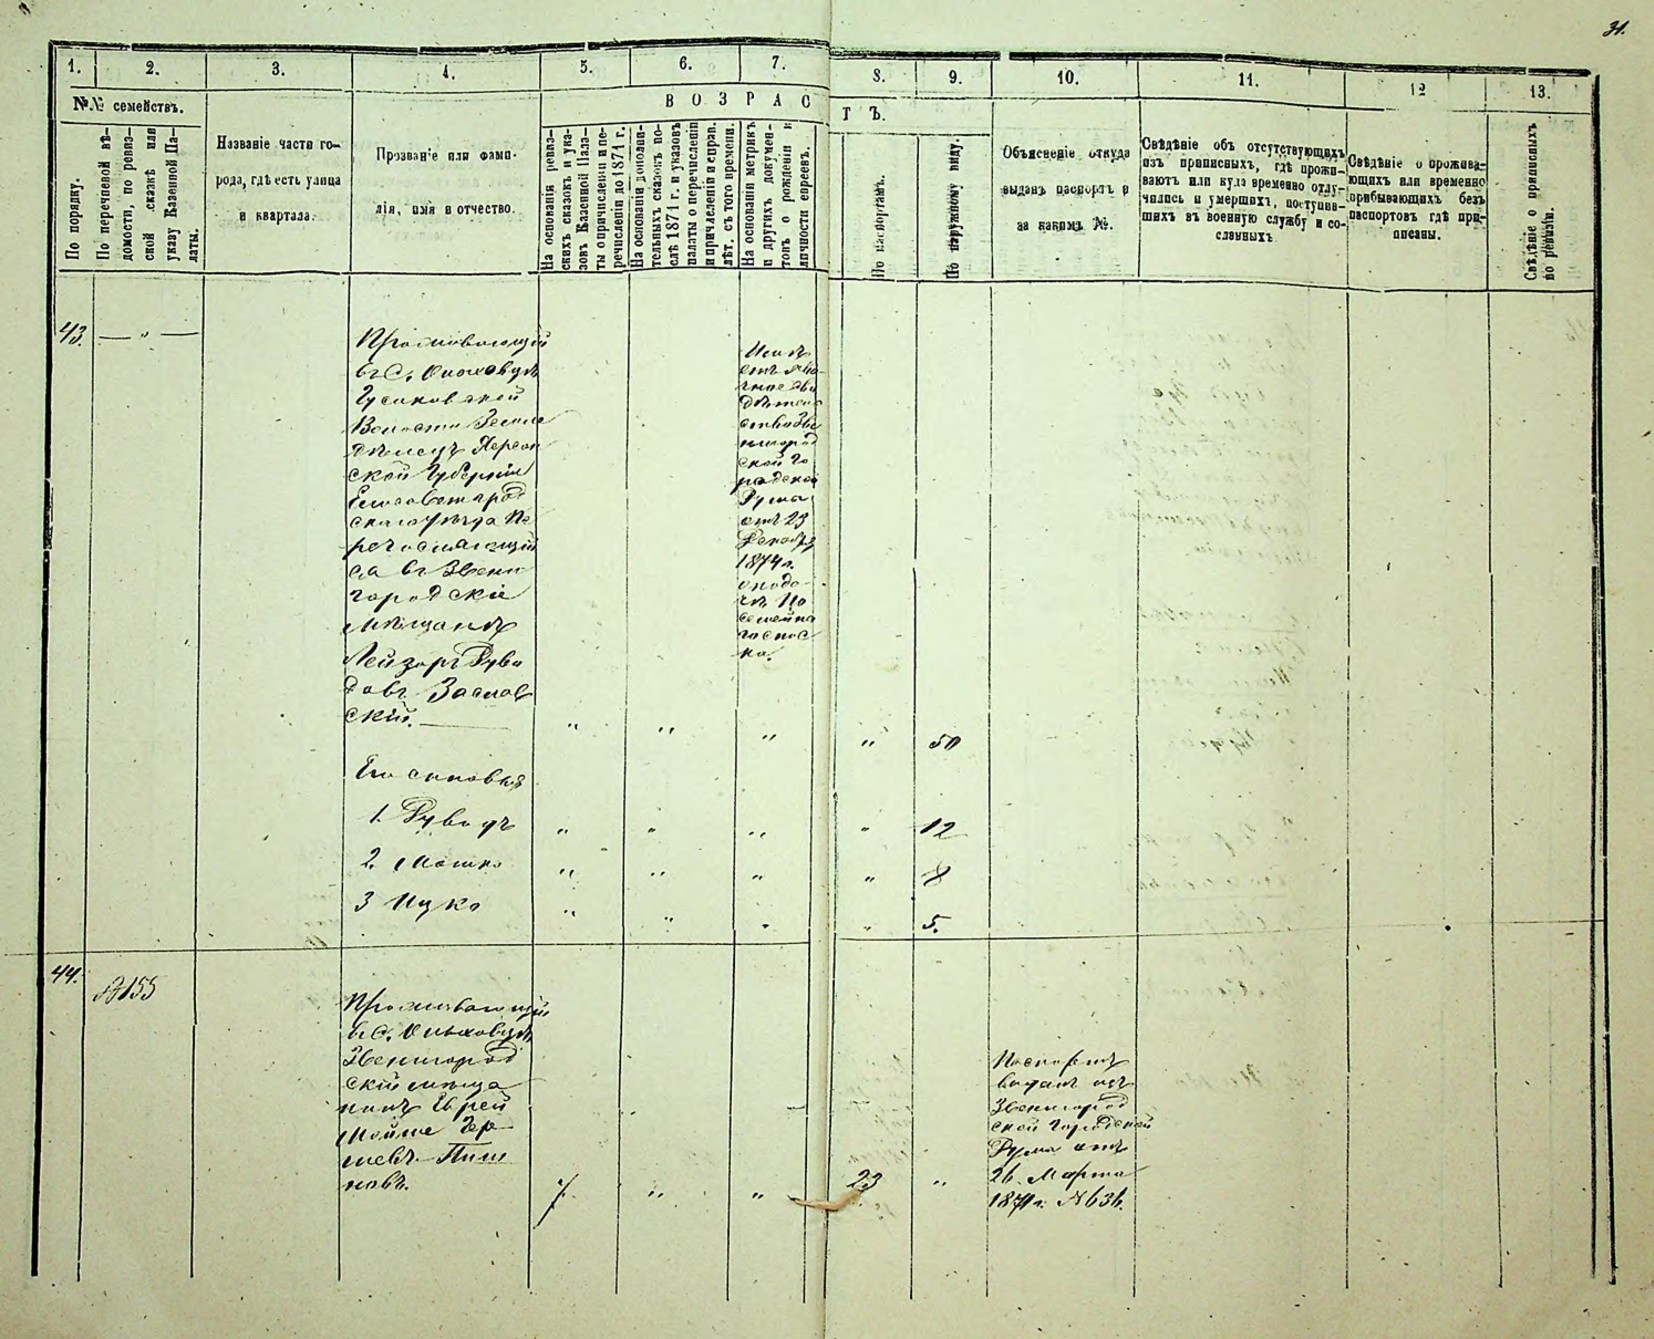 31.
1.
2.
3.
4.
5.
6.
7.
8.
9.
10.
11.
12
13.
№№ семействъ.
ВОЗРАС
ТЪ.
По порядку.
По перечневой вѣ-
домости, по ревиз-
ской сказкѣ или
указу Казенной Па-
латы.
Названіе части го-
рода, гдѣ есть улица
и квартала.
Прозваніе или фами-
лія, имя и отчество.
На основаніи ревиз-
скихъ сказокъ и ука-
зовъ Казенной Пала-
ты о причисленіи и пе-
речисленіи до 1871 г.
На основаніи дополни-
тельныхъ сказокъ по-
слѣ 1871 г. и указовъ
палаты о перечисленіи
и причисленіи и справ.
лѣт. съ того времени.
На основаніи метрикъ
и другихъ докумен-
товъ о рожденіи и
личности евреевъ.
По паспортамъ.
По наружному виду.
Объясненіе откуда
выданъ паспортъ и
за какимъ №.
Свѣдѣніе объ отсутствующихъ
изъ приписныхъ, гдѣ прожи-
ваютъ или куда временно отлу-
чились и умершихъ, поступив-
шихъ въ военную службу и со-
сланныхъ
Свѣдѣніе о прожива-
ющихъ или временно
прибывающихъ безъ
паспортовъ гдѣ при-
писаны.
Свѣдѣніе о приписныхъ
по ревизіи.
43.
— " —
Проживающій
въ С. Ольховцѣ
Гусаковской
Волости Земле
дѣлецъ Херсон
ской Губерніи
Елисаветград
скаго уѣзда Пе
речисляющій
ся въ Звени
городскіе
мѣщане
Лейзоръ Рува
новъ Заслав
скій.
городской
Думы
отъ 23
Декабря
1874 г.
" " " " 50
Его сыновья
1. Рувенъ " " " " 12
2. Мошко " " " " 8
3 Ицко " " " " 5.
44.
№155
Проживающій
въ С. Ольховцѣ
Звенигород
скій мѣща
нинъ Еврей
Мойше Гер
шевъ
7. " " 23 "
Паспортъ
выданъ изъ
Звенигород
ской Городской
Думы отъ
26 Марта
1874 г. №636.